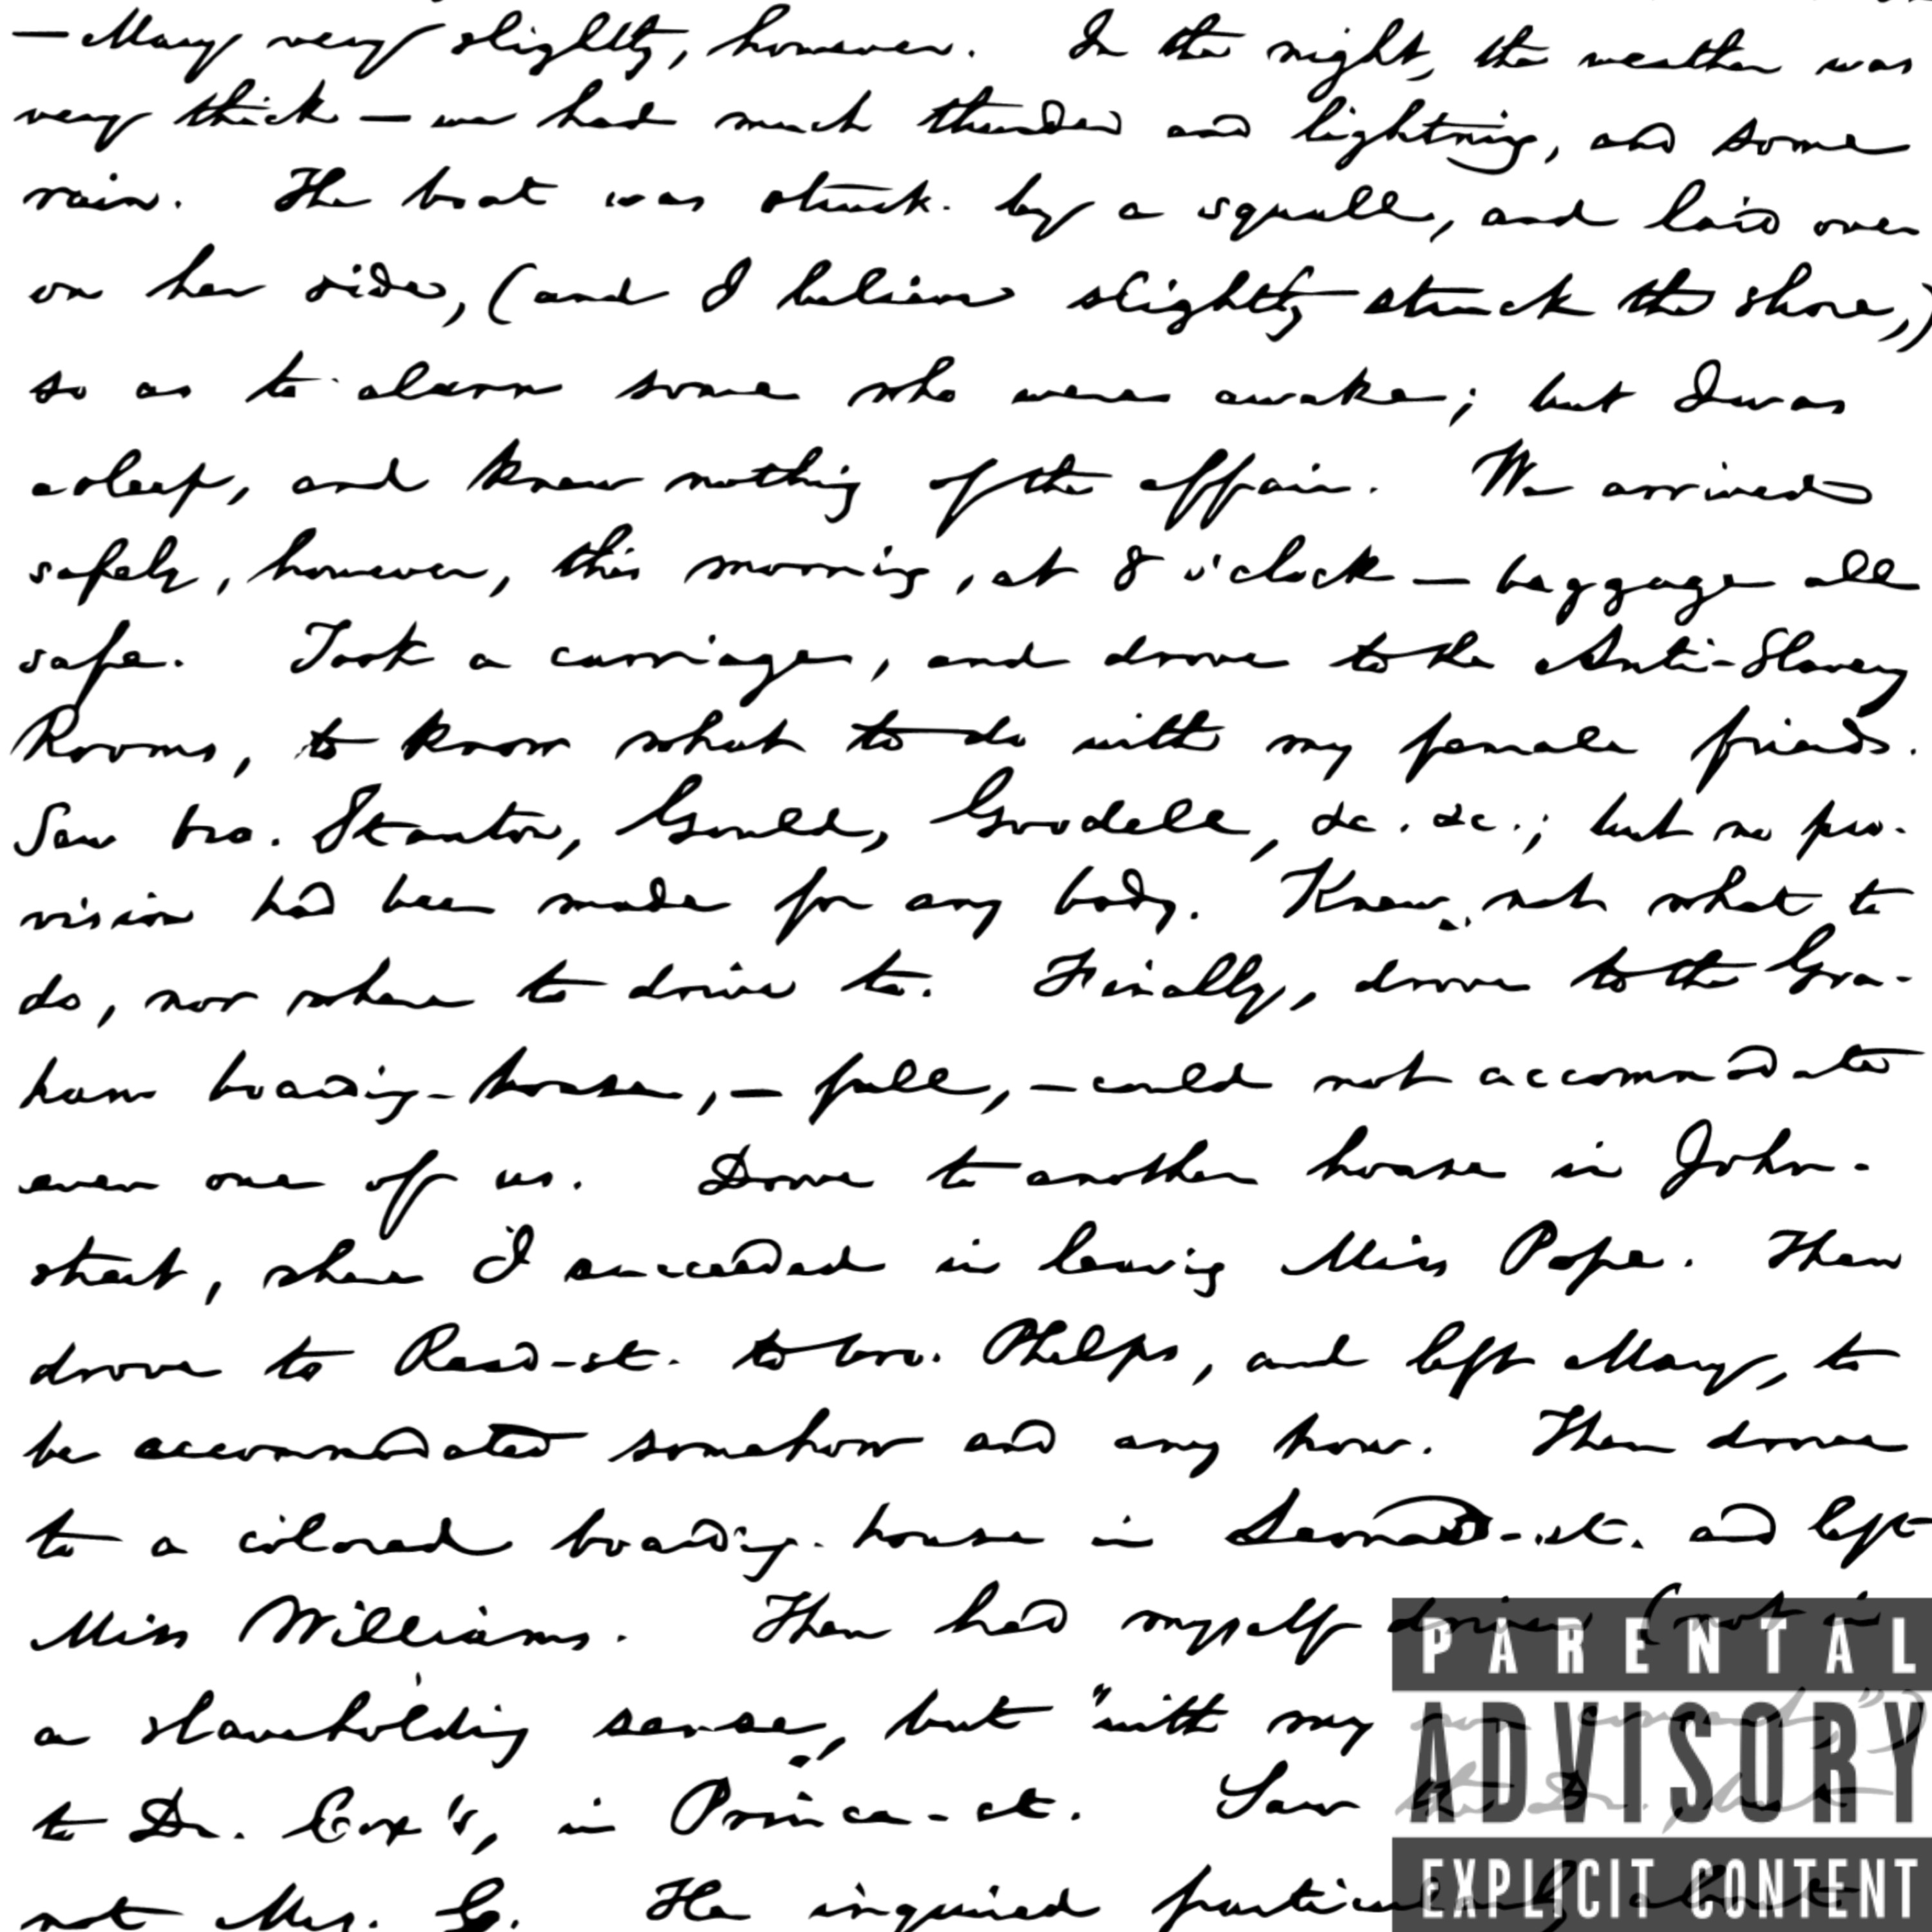 — Mary very slightly, however. In the night, the weather was
very thick — we had much thunder and lightning, and some
rain. The boat was struck by a squall, and laid over
on her side, (and I believe slightly struck the shore,)
so as to alarm some who were awake; but I was
asleep, and knew nothing of the affair. We arrived
safely, however, this morning, at 8 o'clock — baggage all
safe. Took a carriage, and drove to the Anti-Slavery
Rooms, to know what to do with my female friends.
Saw bro. Stanton, Gould, Goodell, &c. &c.; but no pro-
vision had been made for any body. Knew not what to
do, nor where to drive to. Finally, drove to the Gra-
ham boarding-house, — full, — could not accommodate
even one of us. Drove to another house in John-
street, where I succeeded in leaving Miss Pope. Then
drove to Read-st. to bro. Phelps, and left Mary, to
be accommodated somehow and any how. Then drove
to a colored boarding-house in Leonard-st. and left
Miss Williams. Then had myself driven (not in
a slaveholding sense, but "with my own consent")
to Dr. Cox's, in Prince-st. Saw the Dr., but
not Mrs. C. He inquired particularly about
PARENTAL
ADVISORY
EXPLICIT CONTENT